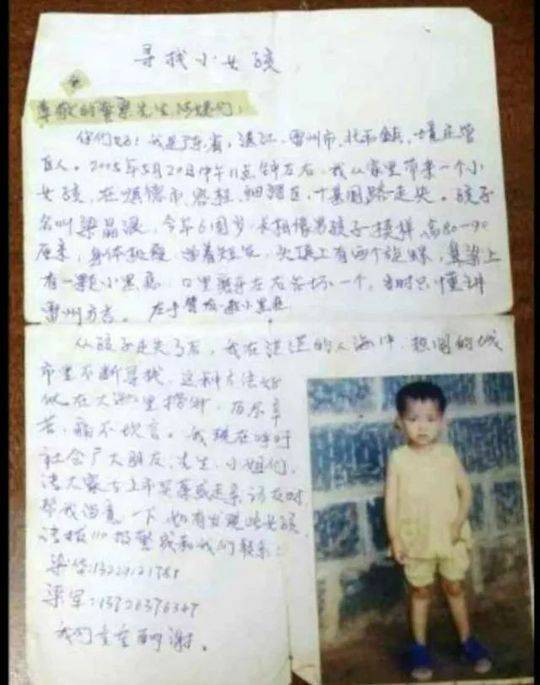 寻找小女孩
尊敬的 先生 们:
你们好!我是广东省,湛江,雷州市,北和镇,
区人。2005年5月20日中午11点钟左右,我从家里带来一个小
女孩,在顺德市,容桂,细滘区,十 路走失。孩子
名叫梁晶 ,今年6周岁,长相像男孩子 样,高80—90
厘米,身体 ,留着短发,头顶上有两个旋 ,鼻梁上
有一颗小黑痣,口里 牙左右各坏一个,当时只懂讲
雷州方言。左手臂有一颗小黑痣
从孩子走失了后,我在茫茫的人海中,热闹的城
市里不断寻找,这种方法好
似在大海里捞针,历尽辛
苦,痛不 言。我现在呼吁
社会广大朋友,先生,小姐们,
请大家在上下 或走亲访友时
帮我留意一下,如有发现此女孩
请拨110报警或和我们联系:
梁华:
梁军:
我们 重 酬谢。